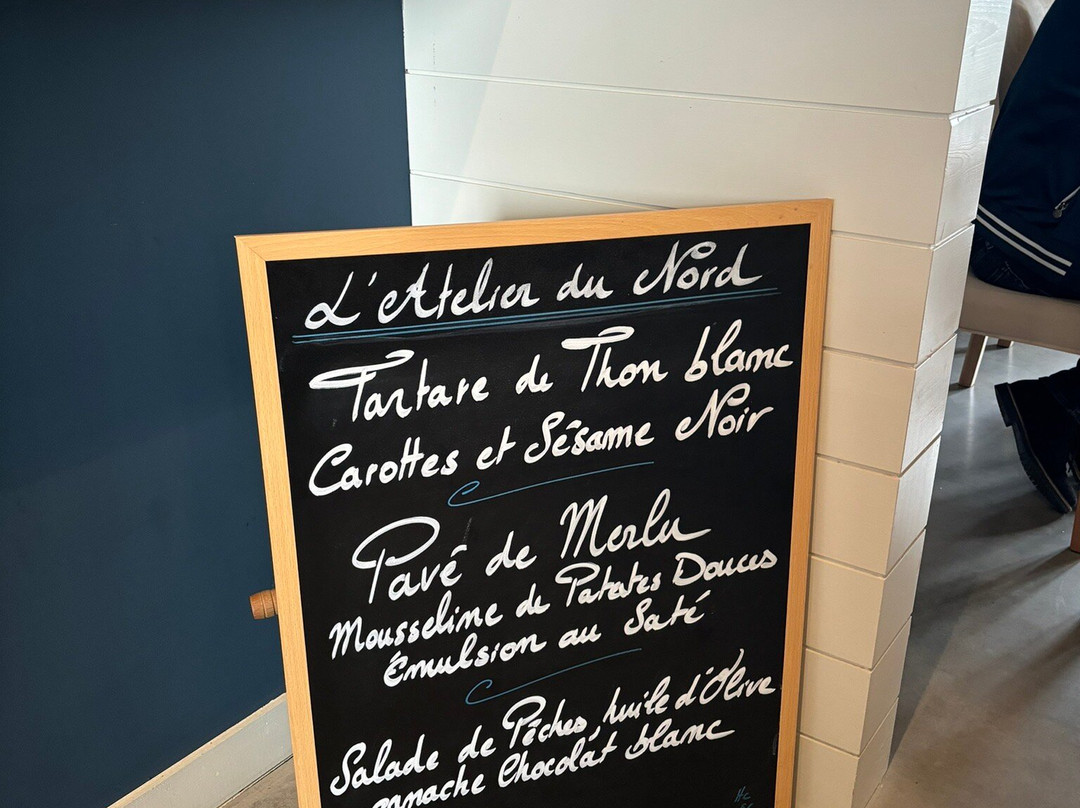 L'Atelier du Nord
Tartare de Thon blanc
Carottes et Sésame Noir
Pavé de Merlu
Mousseline de Patates Douces
Émulsion au Saté
Salade de Pêches, huile d'Olive
ganache Chocolat blanc